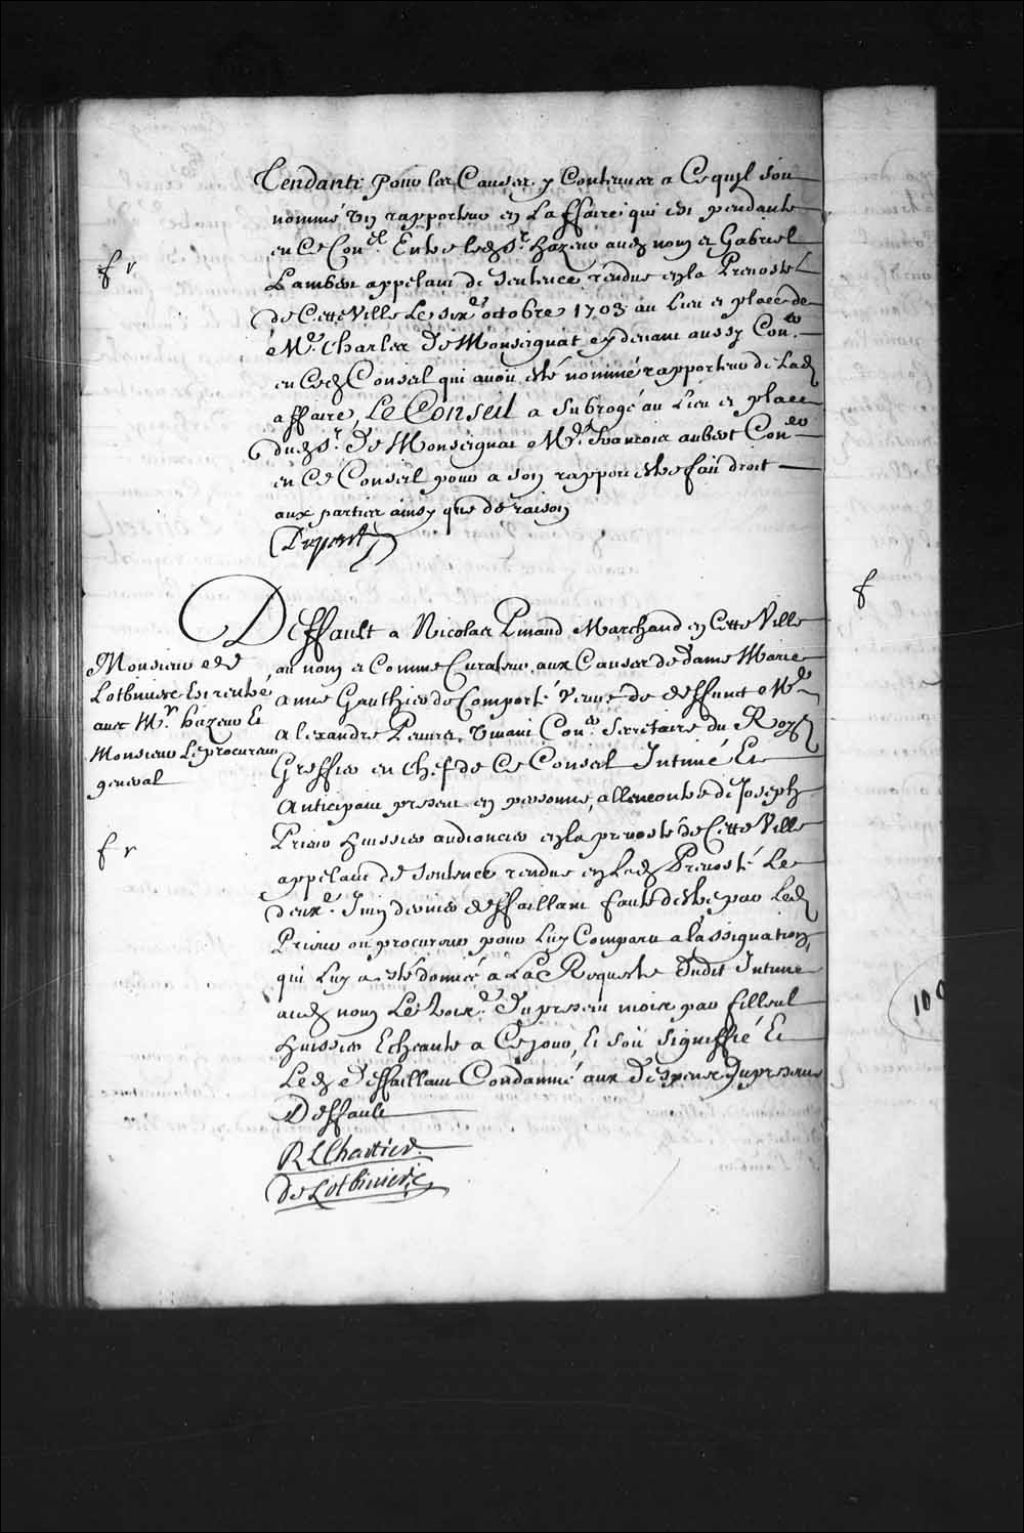 Tendante pour les Causes y Contenues a Ce quyl soit
nommé un rapporteur en Laffaire qui est pendante
en Ce Con.el Entre led S.r hazeur aud nom et Gabriel
f r
Lambert appelant de Sentence rendue en la Prevosté
de Cette Ville Le six.e octobre 1703 au Lieu et place de
M.e Charles de Monseignat cydevant aussy Con.er
en Ced Conseil qui avoit esté nommé rapporteur de Lad
affaire, Le Conseil a Subrogé au Lieu et place
dud S.r de Monseignat M.e francois aubert Con.er
en Ce Conseil pour a son rapport estre fait droit
aux parties ainsy que de raison
Dupont
Deffault a Nicolas Pinaud Marchand en Cette Ville
au nom et Comme Curateur aux Causes de dame Marie
anne Gauthier de Comporté veuve de deffunct M.e
alexandre Peuvret vivant Con.er Secretaire du Roy
Greffier en chef de Ce Conseil Intimé Et
Anticipant present en personne, allencontre de Joseph
Prieur huissier audiancier en la prevosté de Cette Ville
appelant de Sentence rendue en Lad Prevosté Le
deux.e Juin dernier deffaillant faute destre par Led
Prieur ou procureur pour Luy Comparu a lassignation
qui Luy a esté donnée à La Requeste dudit Intimé
aud nom Le du present mois par filleul
huissier Echeante a Ce jour, Et soit signiffié Et
Led deffaillant Condamné aux despens du present
Deffault
R L Chartier
de Lotbiniere
Monsieur de
Lotbiniere Est rentré
avec M.r hazeur Et
Monsieur Le procureur
general
f r
f